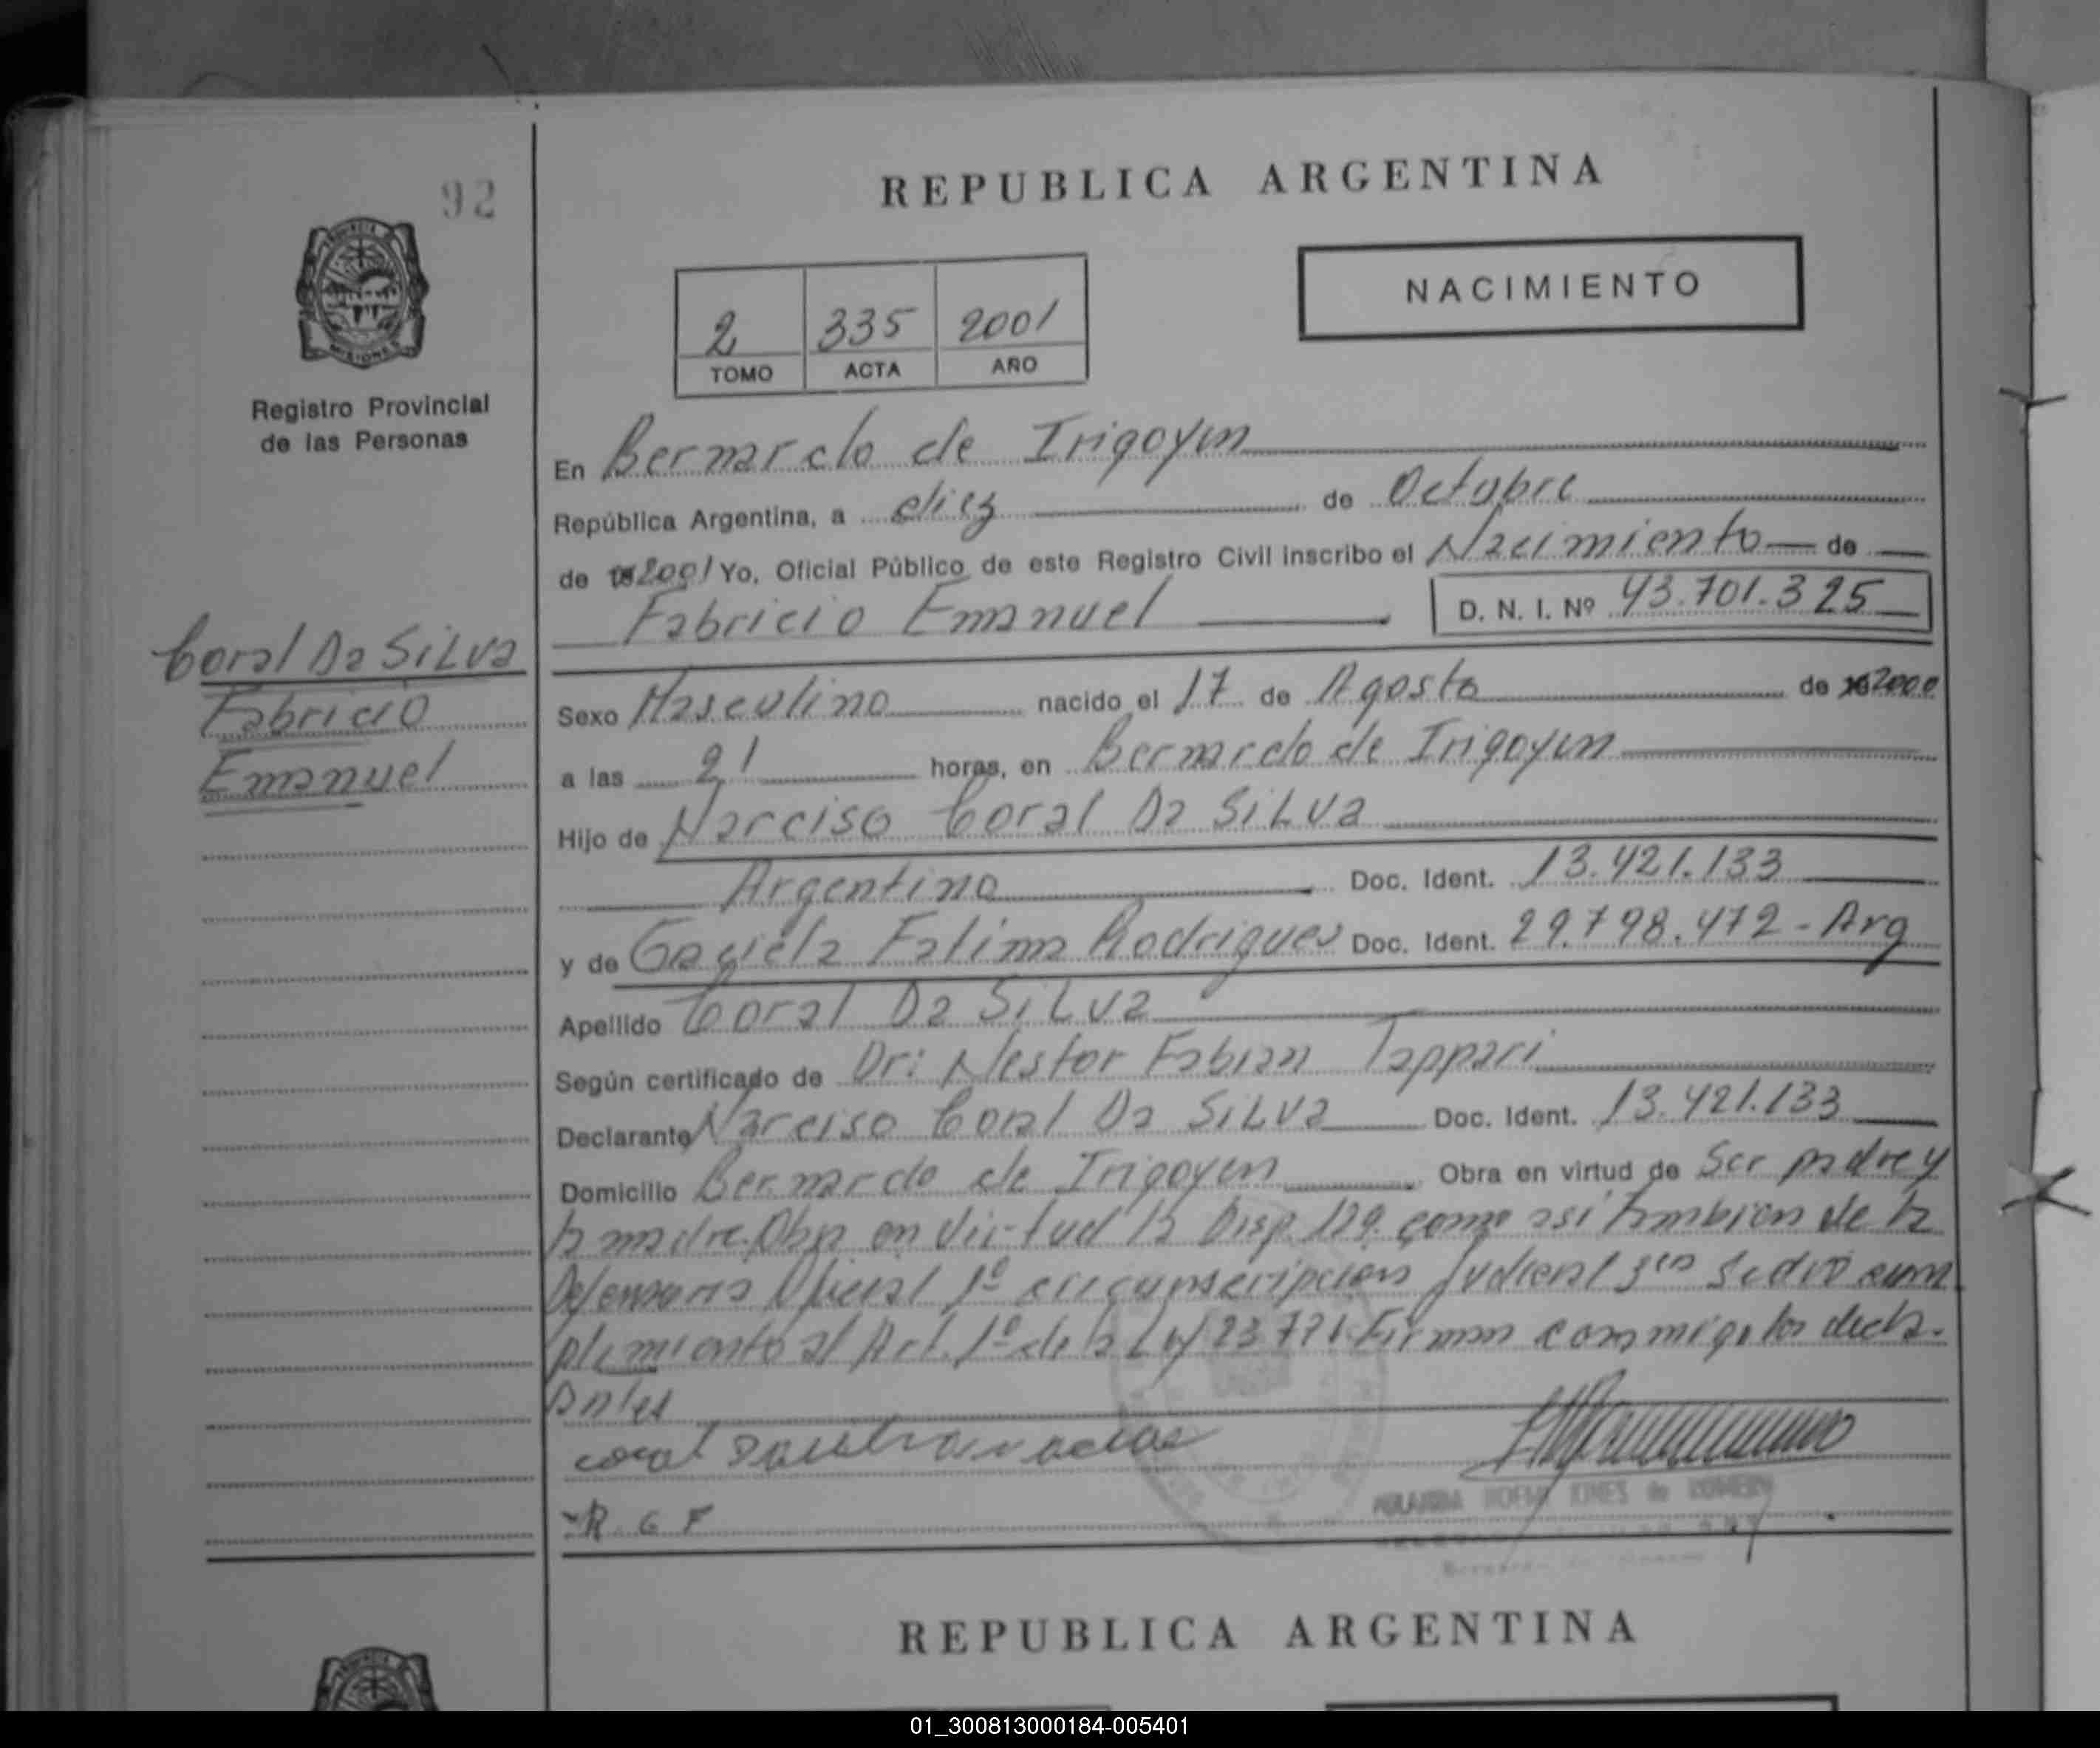 92
REPUBLICA ARGENTINA
NACIMIENTO
2 335 2001
TOMO ACTA AÑO
Registro Provincial
de las Personas
En Bernardo de Irigoyen
República Argentina, a diez de Octubre
de 2001 Yo, Oficial Público de este Registro Civil inscribo el Nacimiento de
Fabricio Emanuel D. N. I. Nº 43.701.325
Coral Da Silva
Fabricio
Emanuel
Sexo Masculino nacido el 17 de Agosto de 2000
a las 21 horas, en Bernardo de Irigoyen
Hijo de Narciso Coral Da Silva
Argentino Doc. Ident. 13.421.133
y de Fatima Rodrigues Doc. Ident. 29.798.472 - Arg
Apellido Coral Da Silva
Según certificado de Dr: Nestor Fabian Tappari
Declarante Narciso Coral Da Silva Doc. Ident. 13.421.133
Domicilio Bernardo de Irigoyen Obra en virtud de Ser padre y
la madre Obra en Virtud la Disp. 129. como asi tambien de la
Defensoria Oficial 1º circunscripcion Judicial se dio cum
plimiento al Art. 1º de la Ley Firman conmigo los decla-
rantes
R G F
REPUBLICA ARGENTINA
01_300813000184-005401